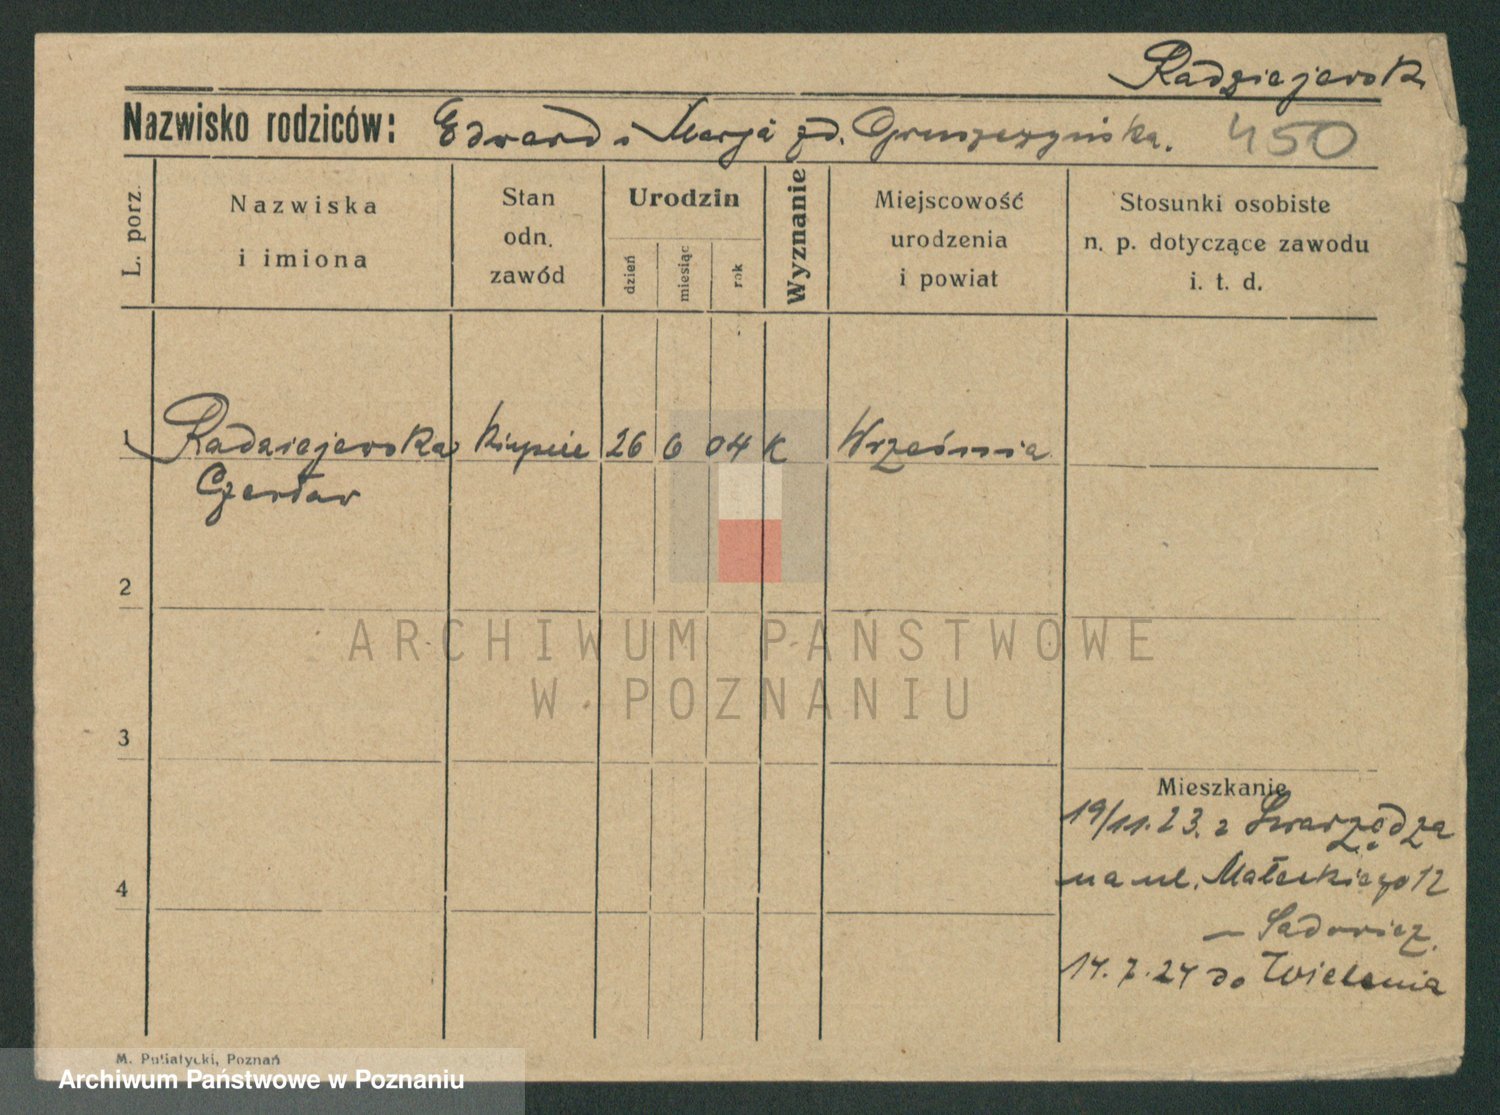 Radziejewsk
Nazwisko rodziców: Edward i Marja zd. Gruszczyńska. 450
L. porz.
Nazwiska
i imiona
Stan
odn.
zawód
Urodzin
dzień
miesiąc
rok
Wyznanie
Miejscowość
urodzenia
i powiat
Stosunki osobiste
n. p. dotyczące zawodu
i. t. d.
1 Radziejewska kupiec 26 6 04 K Września
Czesław
2
3
4
Mieszkanie
19/11.23. z Swarzędza
na ul. Małeckiego 12
— Sadowicz.
14.7.24 do Wielenia
M. Putiatycki, Poznań
ARCHIWUM PAŃSTWOWE
W POZNANIU
Archiwum Państwowe w Poznaniu